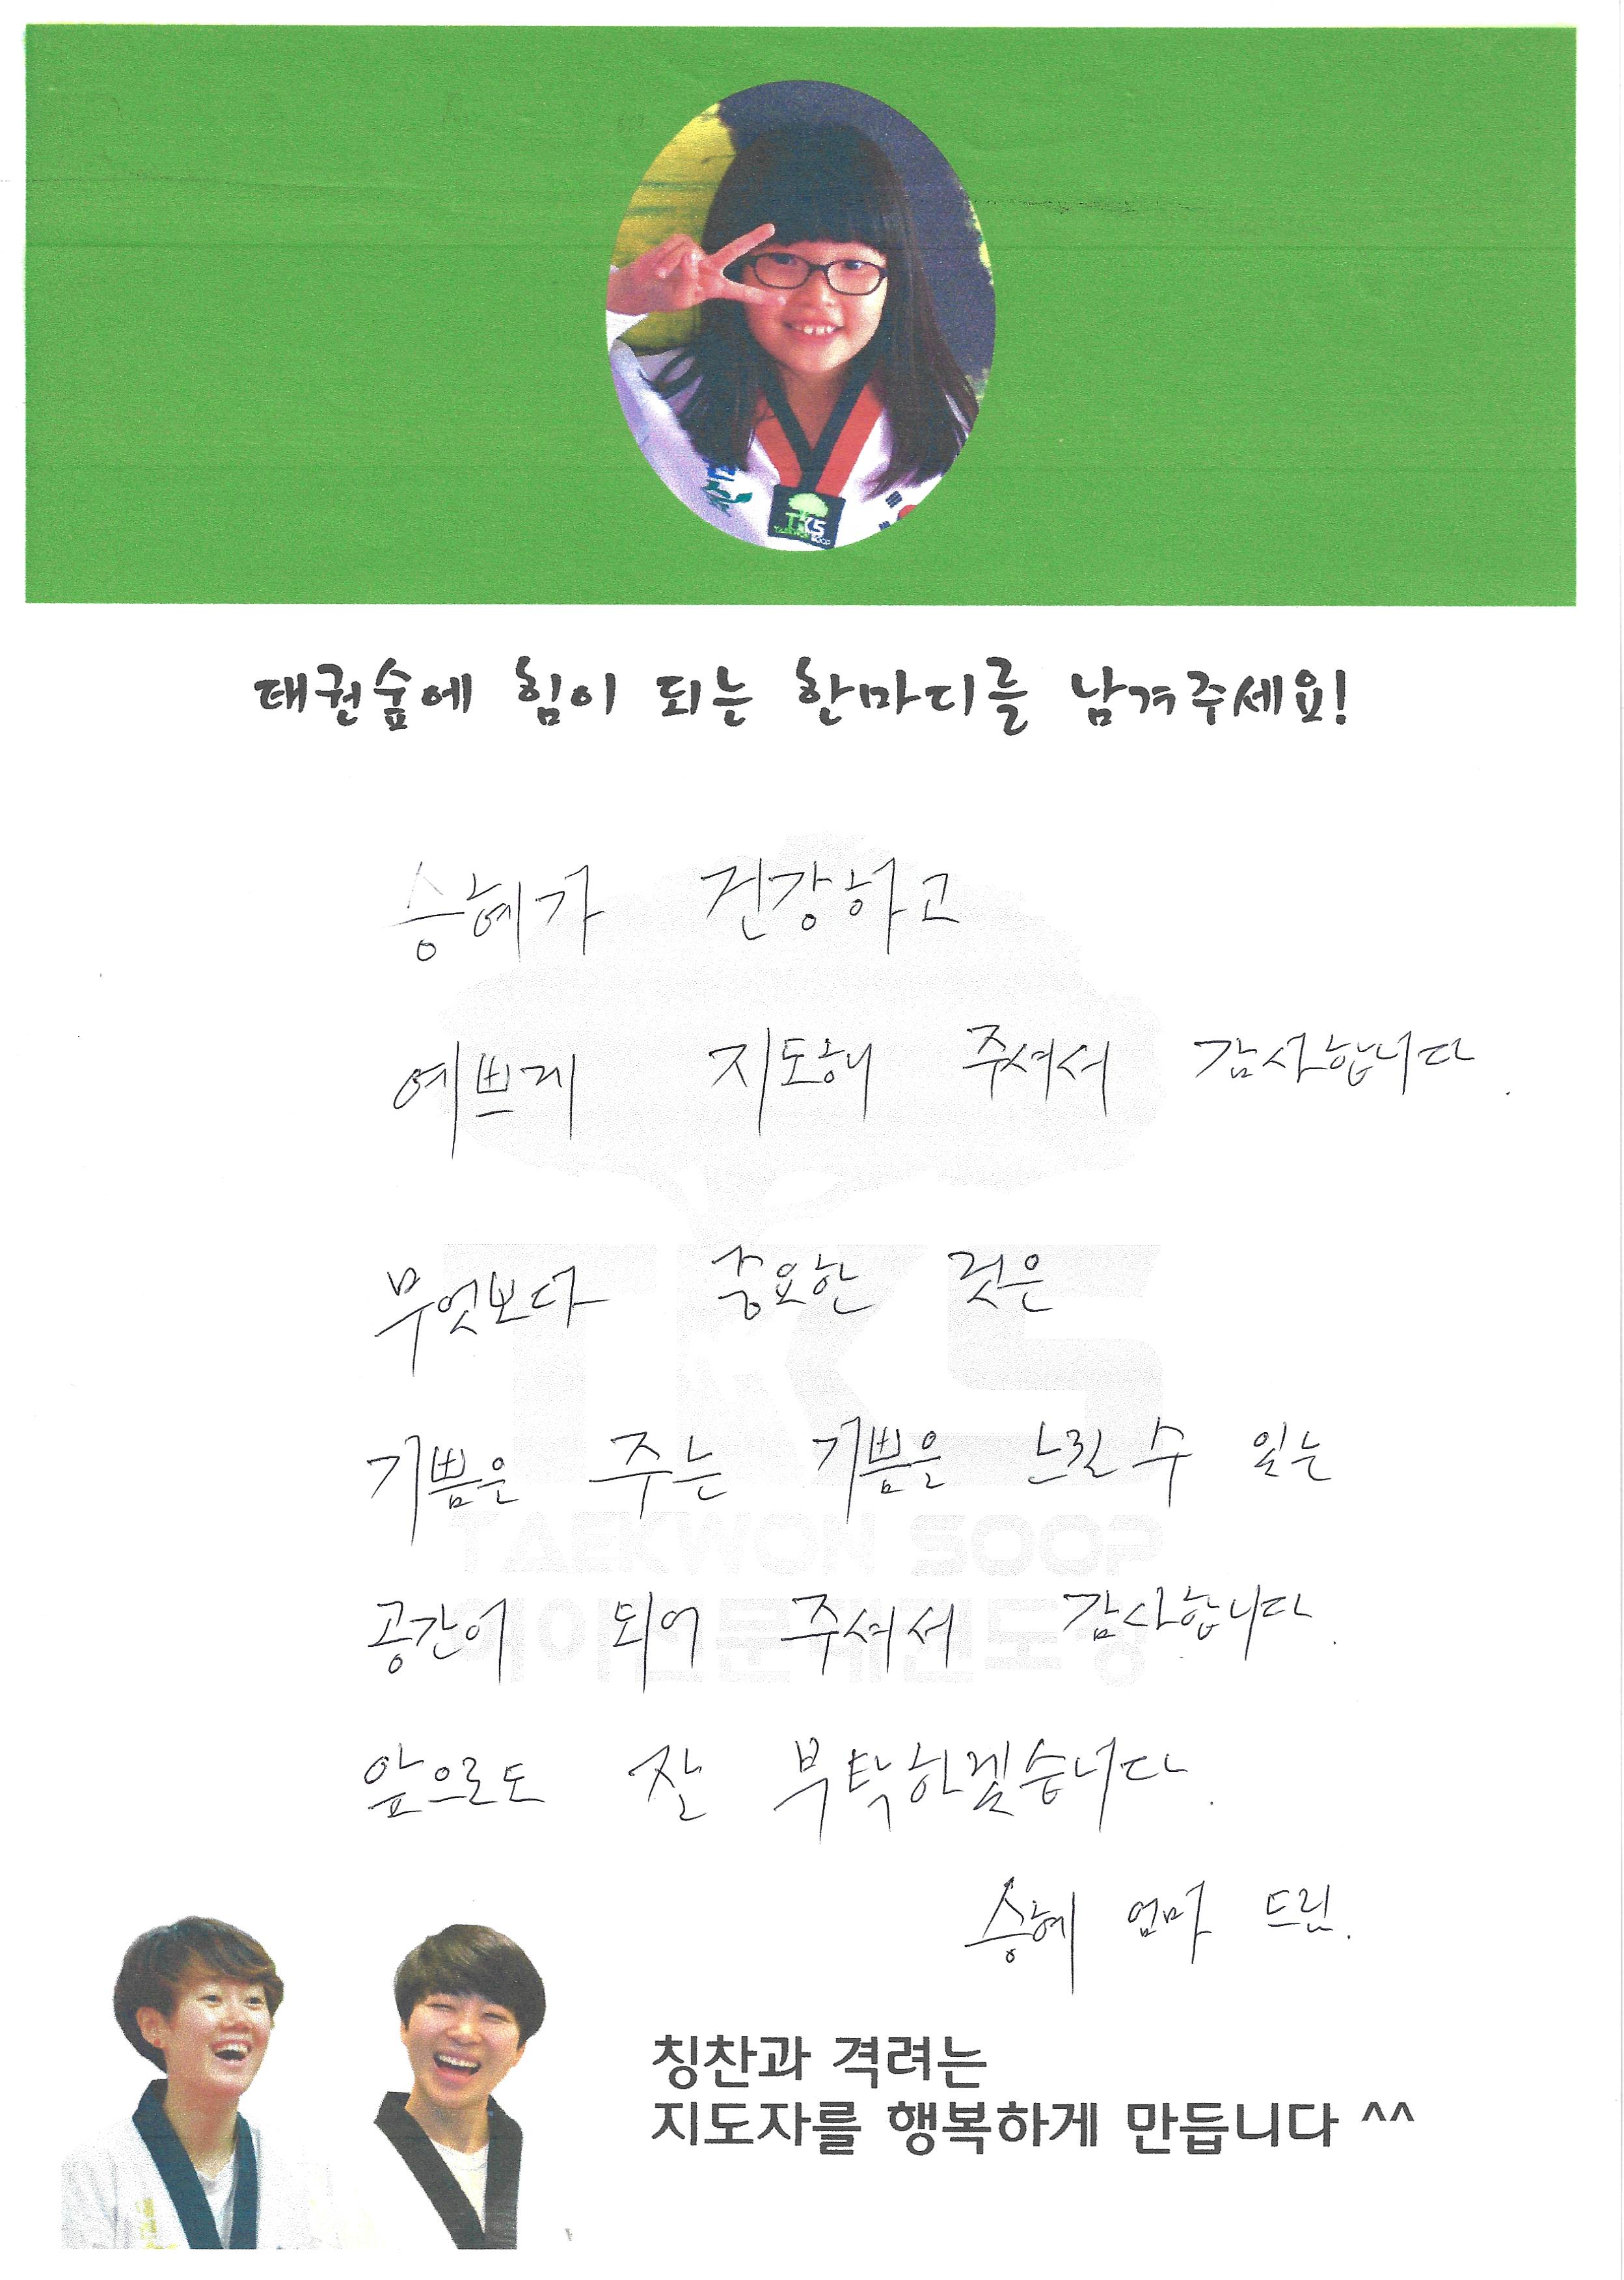 TKS
TAEKWON SOOP
태권숲에 힘이 되는 한마디를 남겨주세요!
승혜가 건강하고
예쁘게 지도해 주셔서 감사합니다.
무엇보다 중요한 것은
기쁨은 주는 기쁨은 느낄 수 있는
공간이 되어 주셔서 감사합니다.
앞으로도 잘 부탁하겠습니다.
승혜 엄마 드림.
TKS
TAEKWON SOOP
칭찬과 격려는
지도자를 행복하게 만듭니다 ^^